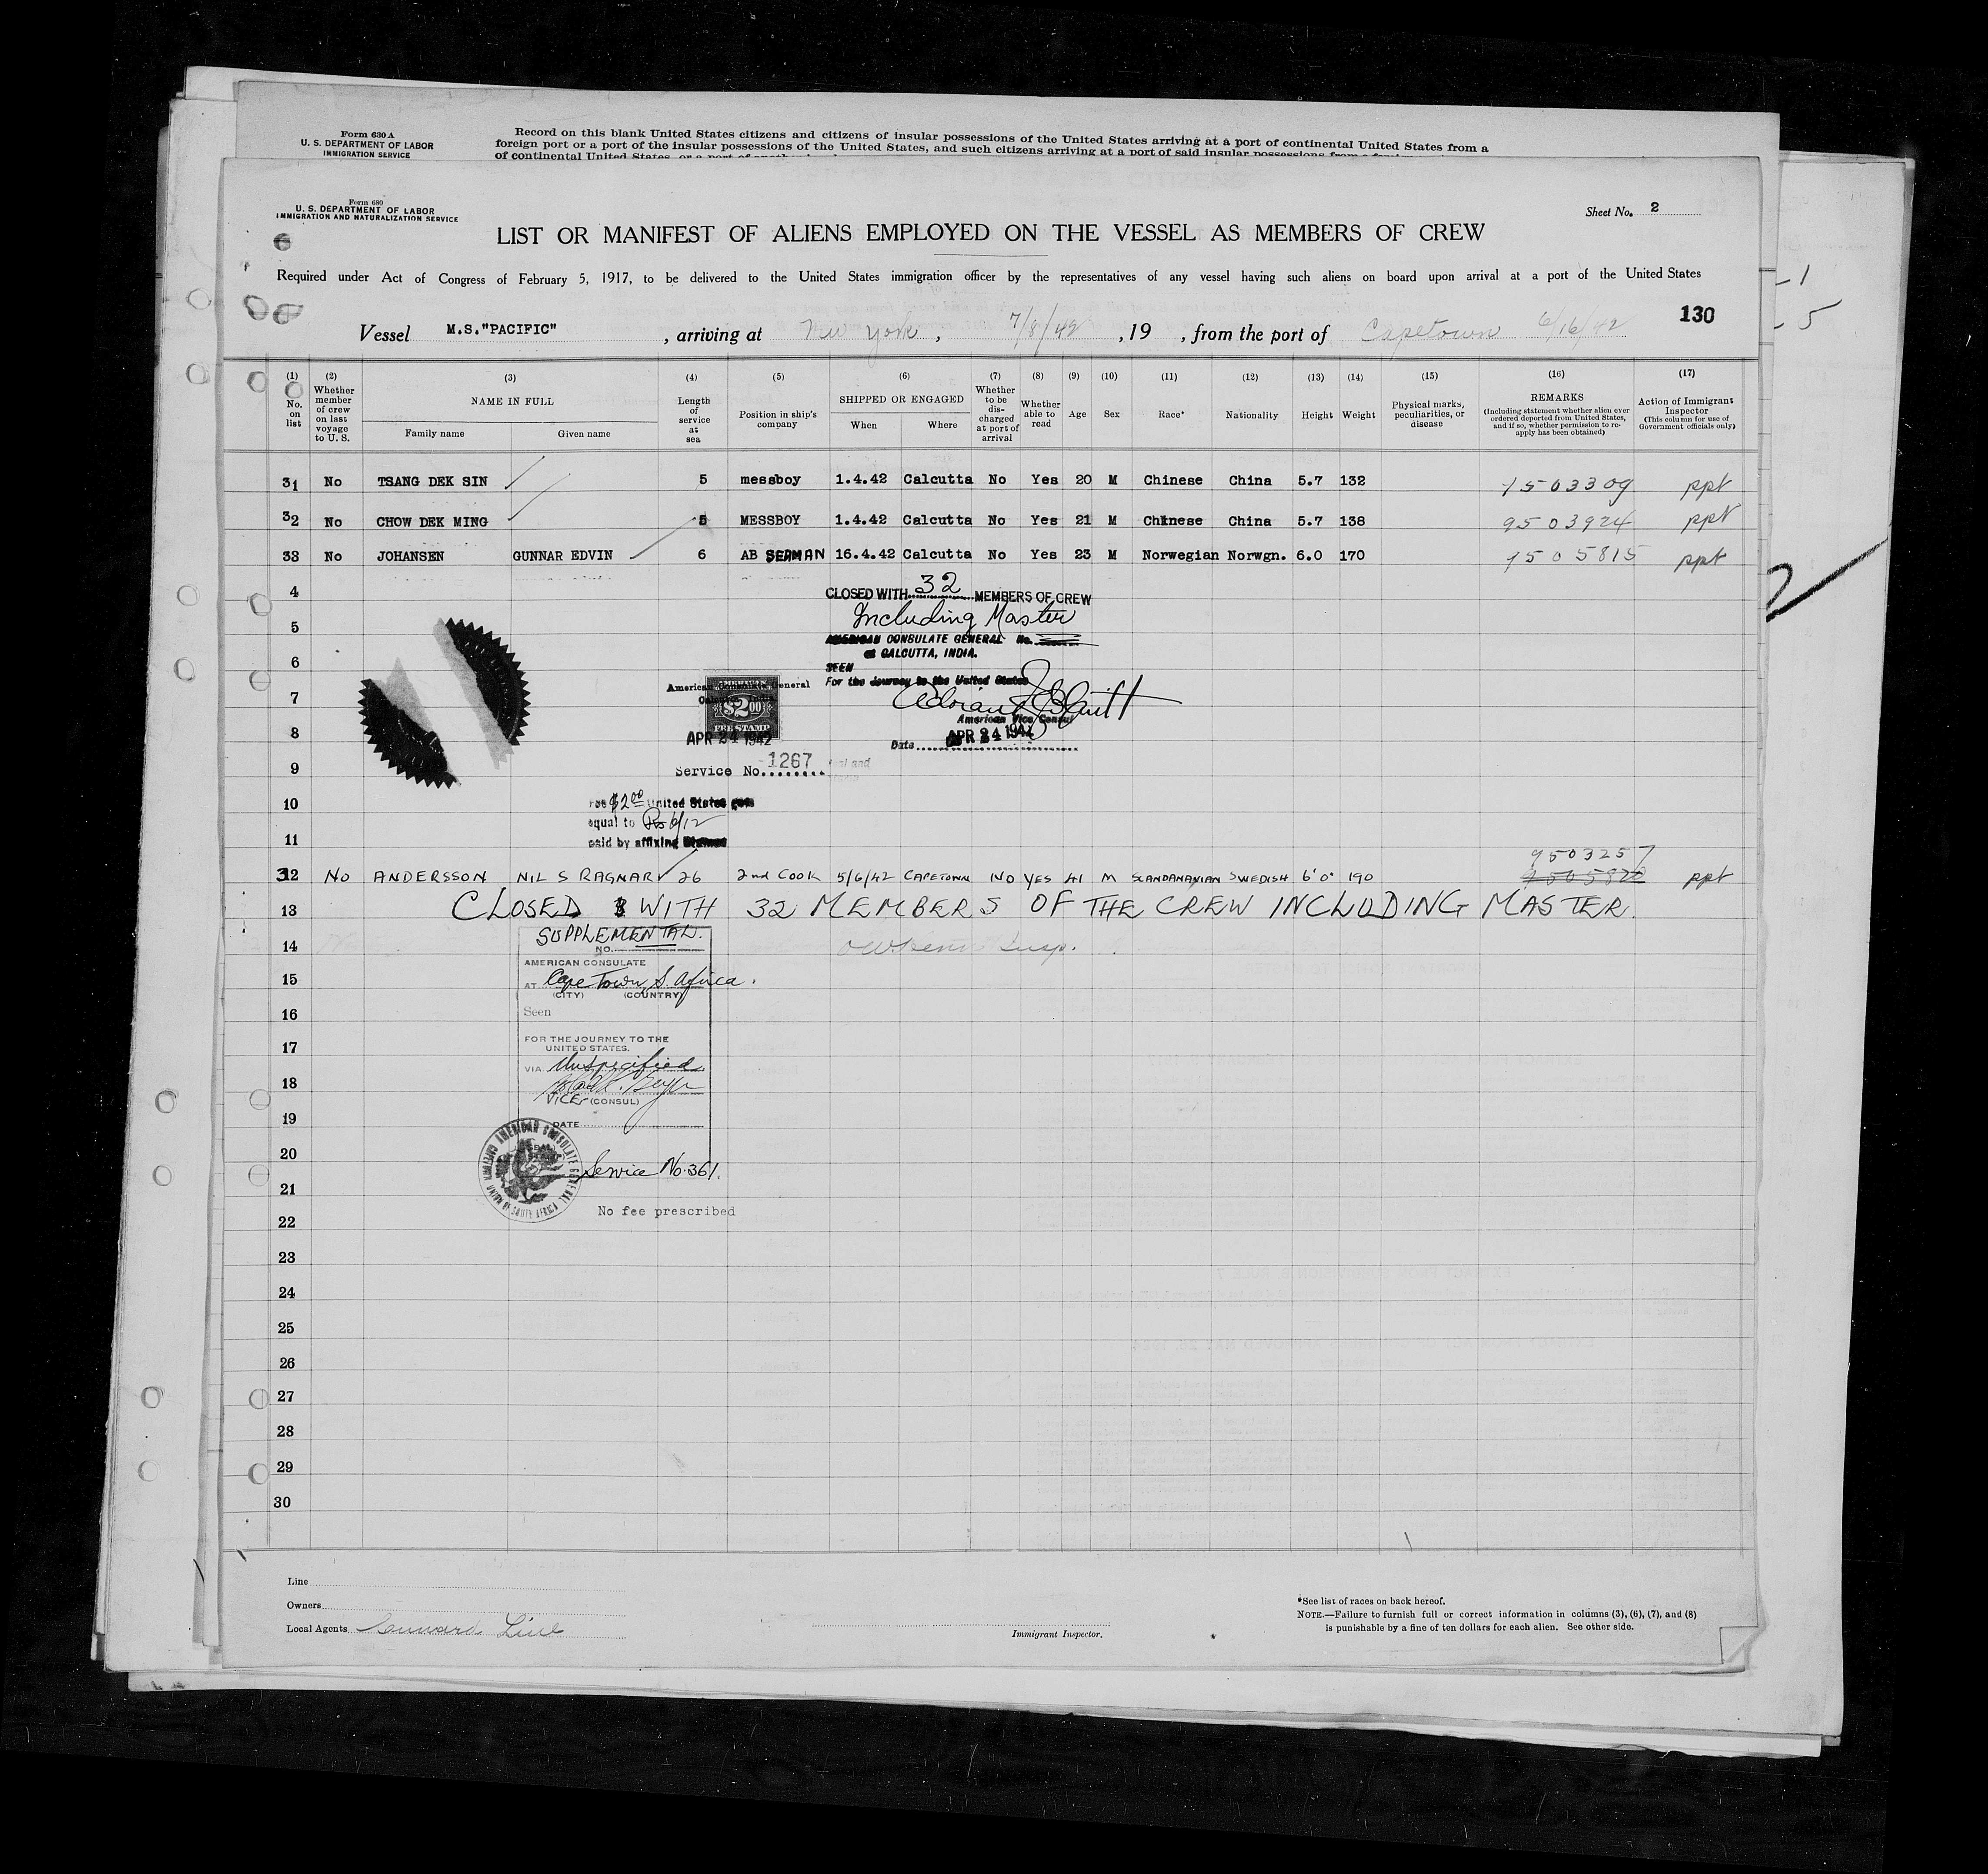 Form 630 A
U. S. DEPARTMENT OF LABOR
IMMIGRATION SERVICE
Record on this blank United States citizens and citizens of insular possessions of the United States arriving at a port of continental United States from a
foreign port or a port of the insular possessions of the United States, and such citizens arriving at a port of said insular possessions from a foreign
of continental United States, or a port of another
Form 680
U. S. DEPARTMENT OF LABOR
IMMIGRATION AND NATURALIZATION SERVICE
Sheet No. 2
LIST OR MANIFEST OF ALIENS EMPLOYED ON THE VESSEL AS MEMBERS OF CREW
Required under Act of Congress of February 5, 1917, to be delivered to the United States immigration officer by the representatives of any vessel having such aliens on board upon arrival at a port of the United States
130
Vessel M.S."PACIFIC" , arriving at New York , 7/8/42 , 19 , from the port of Capetown 6/16/42
(1) No. on list
(2) Whether member of crew on last voyage to U. S.
(3) NAME IN FULL
Family name
Given name
(4) Length of service at sea
(5) Position in ship's company
(6) SHIPPED OR ENGAGED
When
Where
(7) Whether to be discharged at port of arrival
(8) Whether able to read
(9) Age
(10) Sex
(11) Race*
(12) Nationality
(13) Height
(14) Weight
(15) Physical marks, peculiarities, or disease
(16) REMARKS
(Including statement whether alien ever ordered deported from United States, and if so, whether permission to re-apply has been obtained)
(17) Action of Immigrant Inspector
(This column for use of Government officials only)
31 No TSANG DEK SIN 5 messboy 1.4.42 Calcutta No Yes 20 M Chinese China 5.7 132 9503309 ppt
32 No CHOW DEK MING 5 MESSBOY 1.4.42 Calcutta No Yes 21 M Chinese China 5.7 138 9503924 ppt
33 No JOHANSEN GUNNAR EDVIN 6 AB SEAMAN 16.4.42 Calcutta No Yes 23 M Norwegian Norwgn. 6.0 170 9505815 ppt
4
CLOSED WITH 32 MEMBERS OF CREW
5
Including Master
AMERICAN CONSULATE GENERAL No.
at CALCUTTA, INDIA.
6
SEEN
For the Journey to the United States
7
American Consulate General
Calcutta, India
$2.00
FEE STAMP
American Vice Consul
8
APR 24 1942
Date APR 24 1942
9
Service No. 1267
10
Fee $2.00 United States
equal to Rs 6/12
11
paid by affixing Stamps
9503257
32 No ANDERSSON NILS RAGNAR 26 2nd COOK 5/6/42 CAPETOWN NO YES 41 M SCANDANAVIAN SWEDISH 6'0" 190 9505820 ppt
13 CLOSED WITH 32 MEMBERS OF THE CREW INCLUDING MASTER.
SUPPLEMENTAL.
14
NO.
AMERICAN CONSULATE
15
AT Cape Town, S. Africa.
(CITY) (COUNTRY)
16
Seen
17
FOR THE JOURNEY TO THE
UNITED STATES.
VIA Unspecified
18
VICE (CONSUL)
19
DATE
20
AMERICAN CONSULATE GENERAL CAPETOWN UNION OF SOUTH AFRICA
Service No. 361.
21
No fee prescribed
22
23
24
25
26
27
28
29
30
Line
Owners
Local Agents Cunard Line
Immigrant Inspector.
*See list of races on back hereof.
NOTE.—Failure to furnish full or correct information in columns (3), (6), (7), and (8)
is punishable by a fine of ten dollars for each alien. See other side.